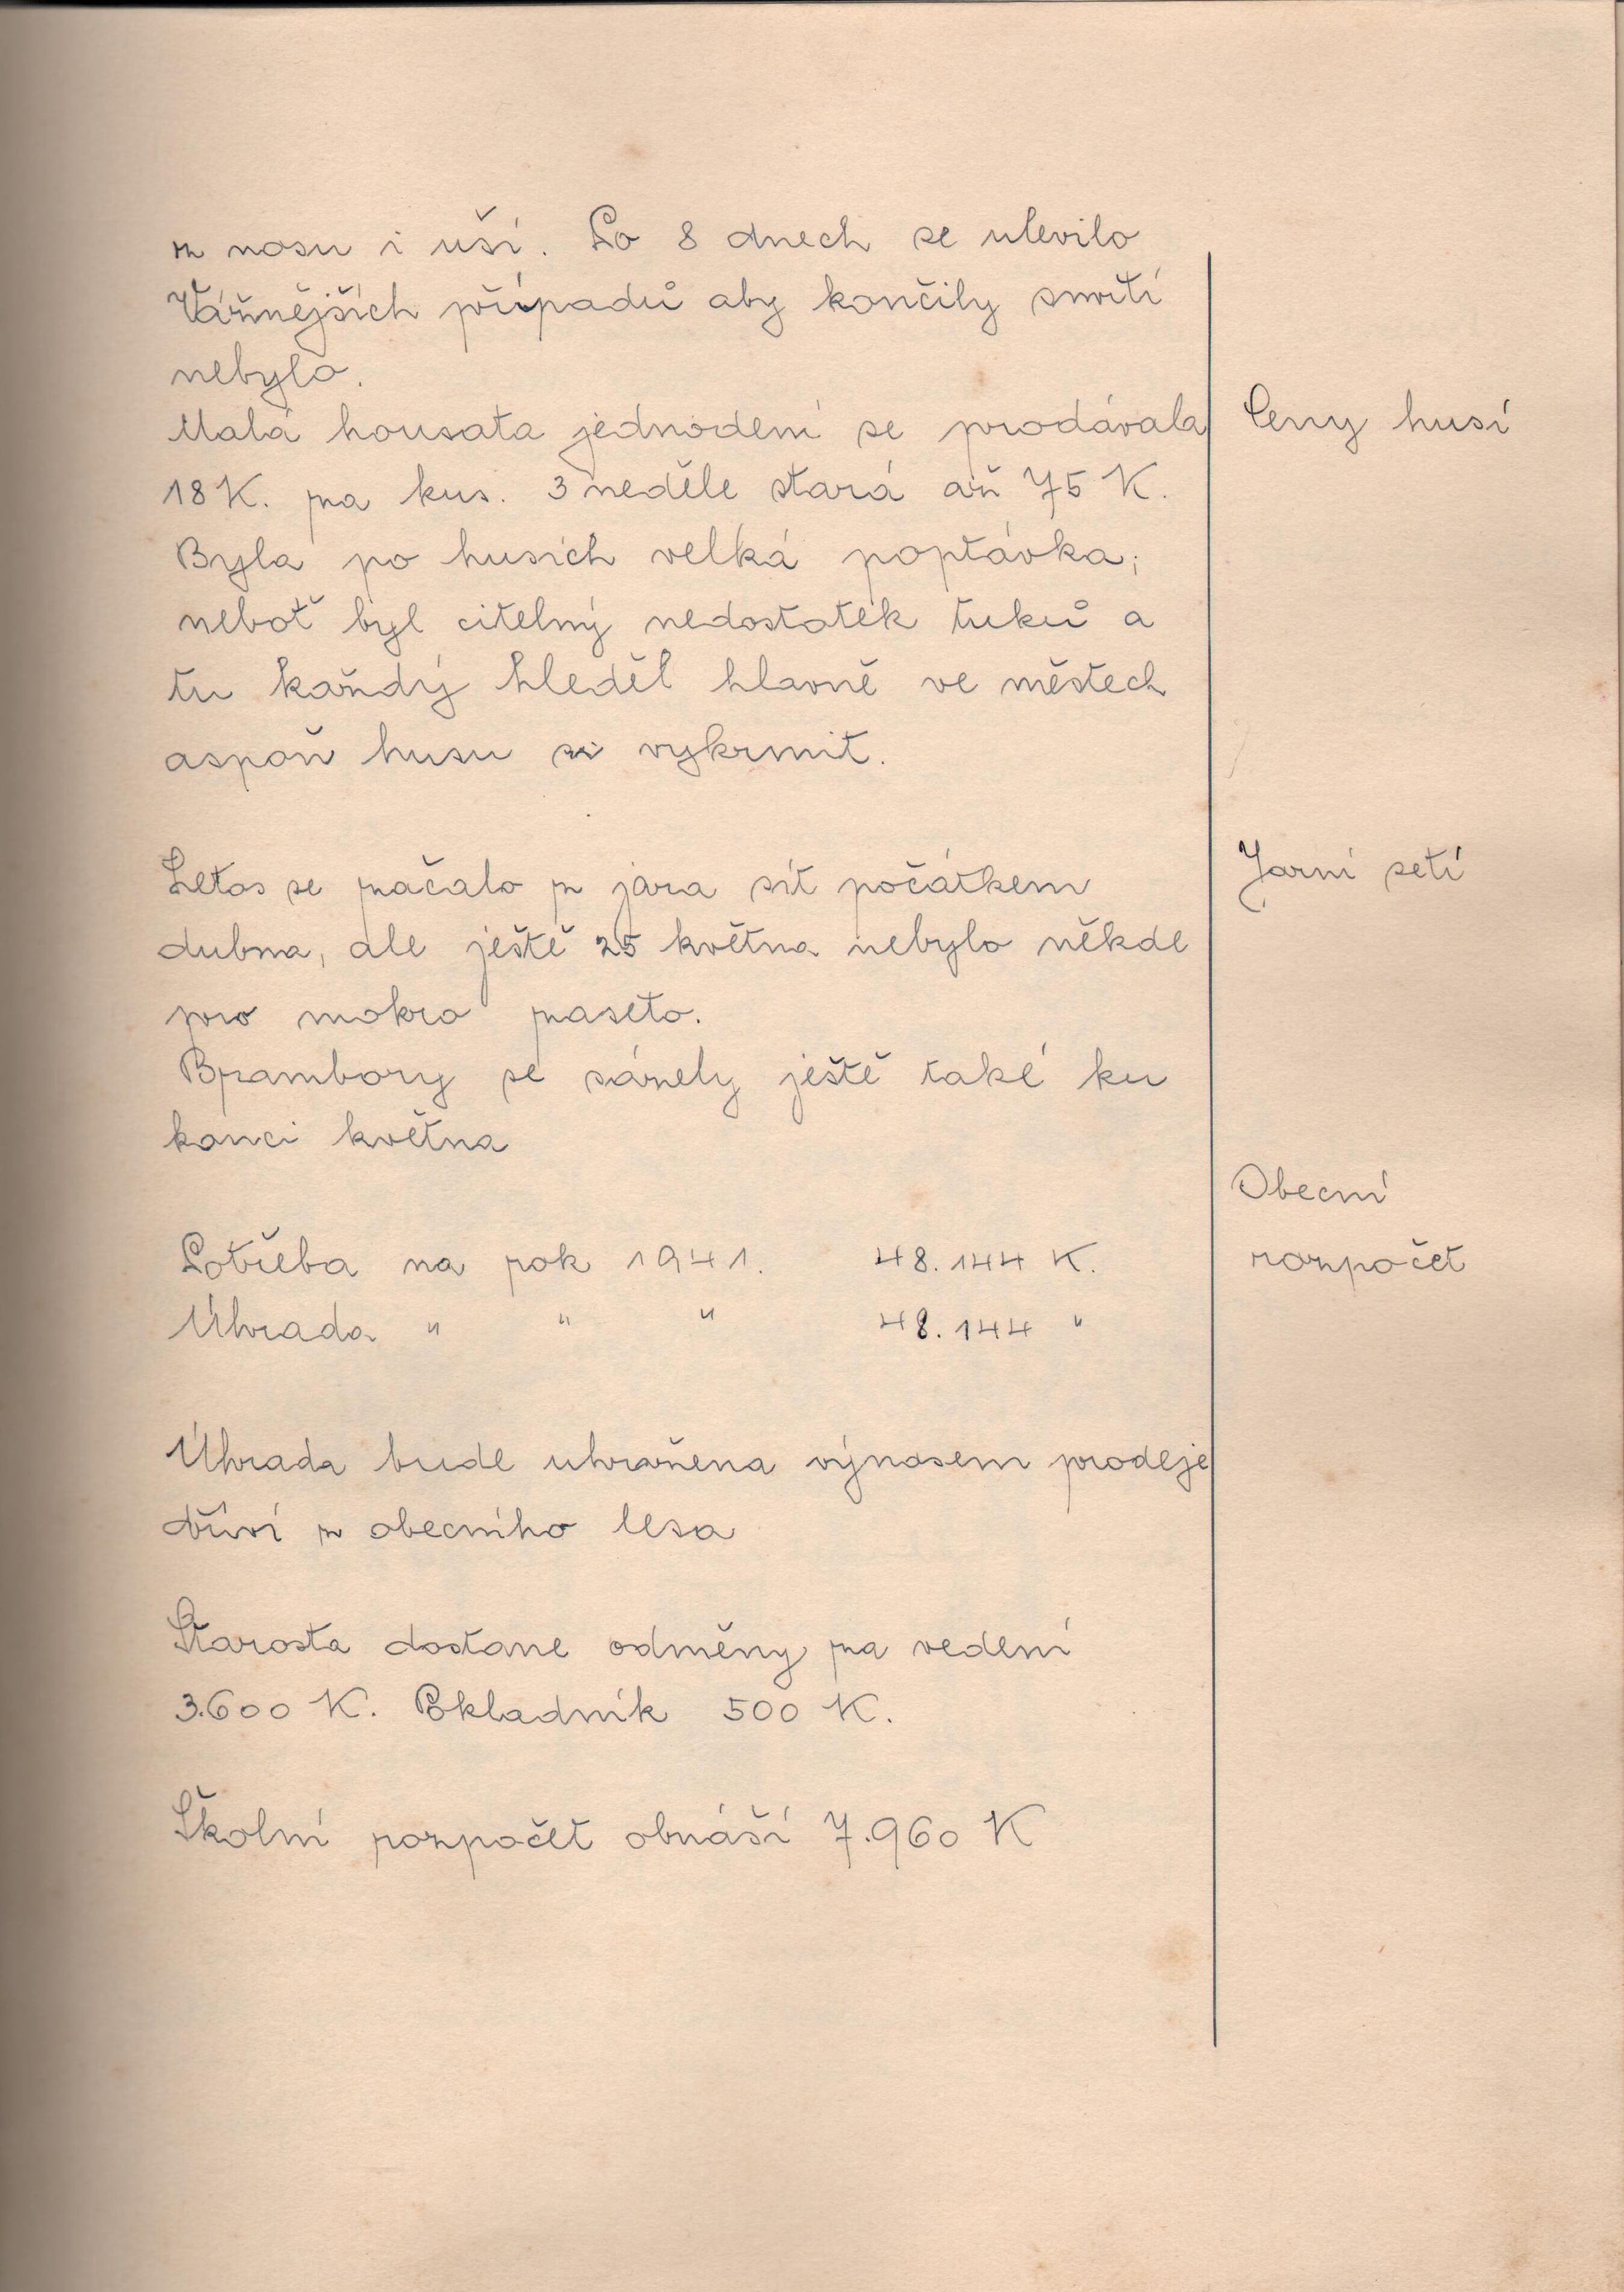 z nosu i uší. Po 8 dnech se ulevilo
Vážnějších případů aby končily smrtí
nebylo.
Malá housata jednodení se prodávala
Ceny husí
18 K. za kus. 3 neděle stará až 75 K.
Byla po husích velká poptávka;
neboť byl citelný nedostatek tuků a
tu každý hleděl hlavně ve městech
aspoň husu si vykrmit.
Letos se začalo z jara sít počátkem
Jarní setí
dubna, ale ještě 25 května nebylo někde
pro mokro zaseto.
Brambory se sázely ještě také ku
konci května
Obecní
rozpočet
Potřeba na rok 1941. 48.144 K.
Úhrada " " " 48.144 "
Úhrada bude uhražena výnosem prodeje
dříví z obecního lesa
Starosta dostane odměny za vedení
3.600 K. Pokladník 500 K.
Školní rozpočet obnáší 7.960 K